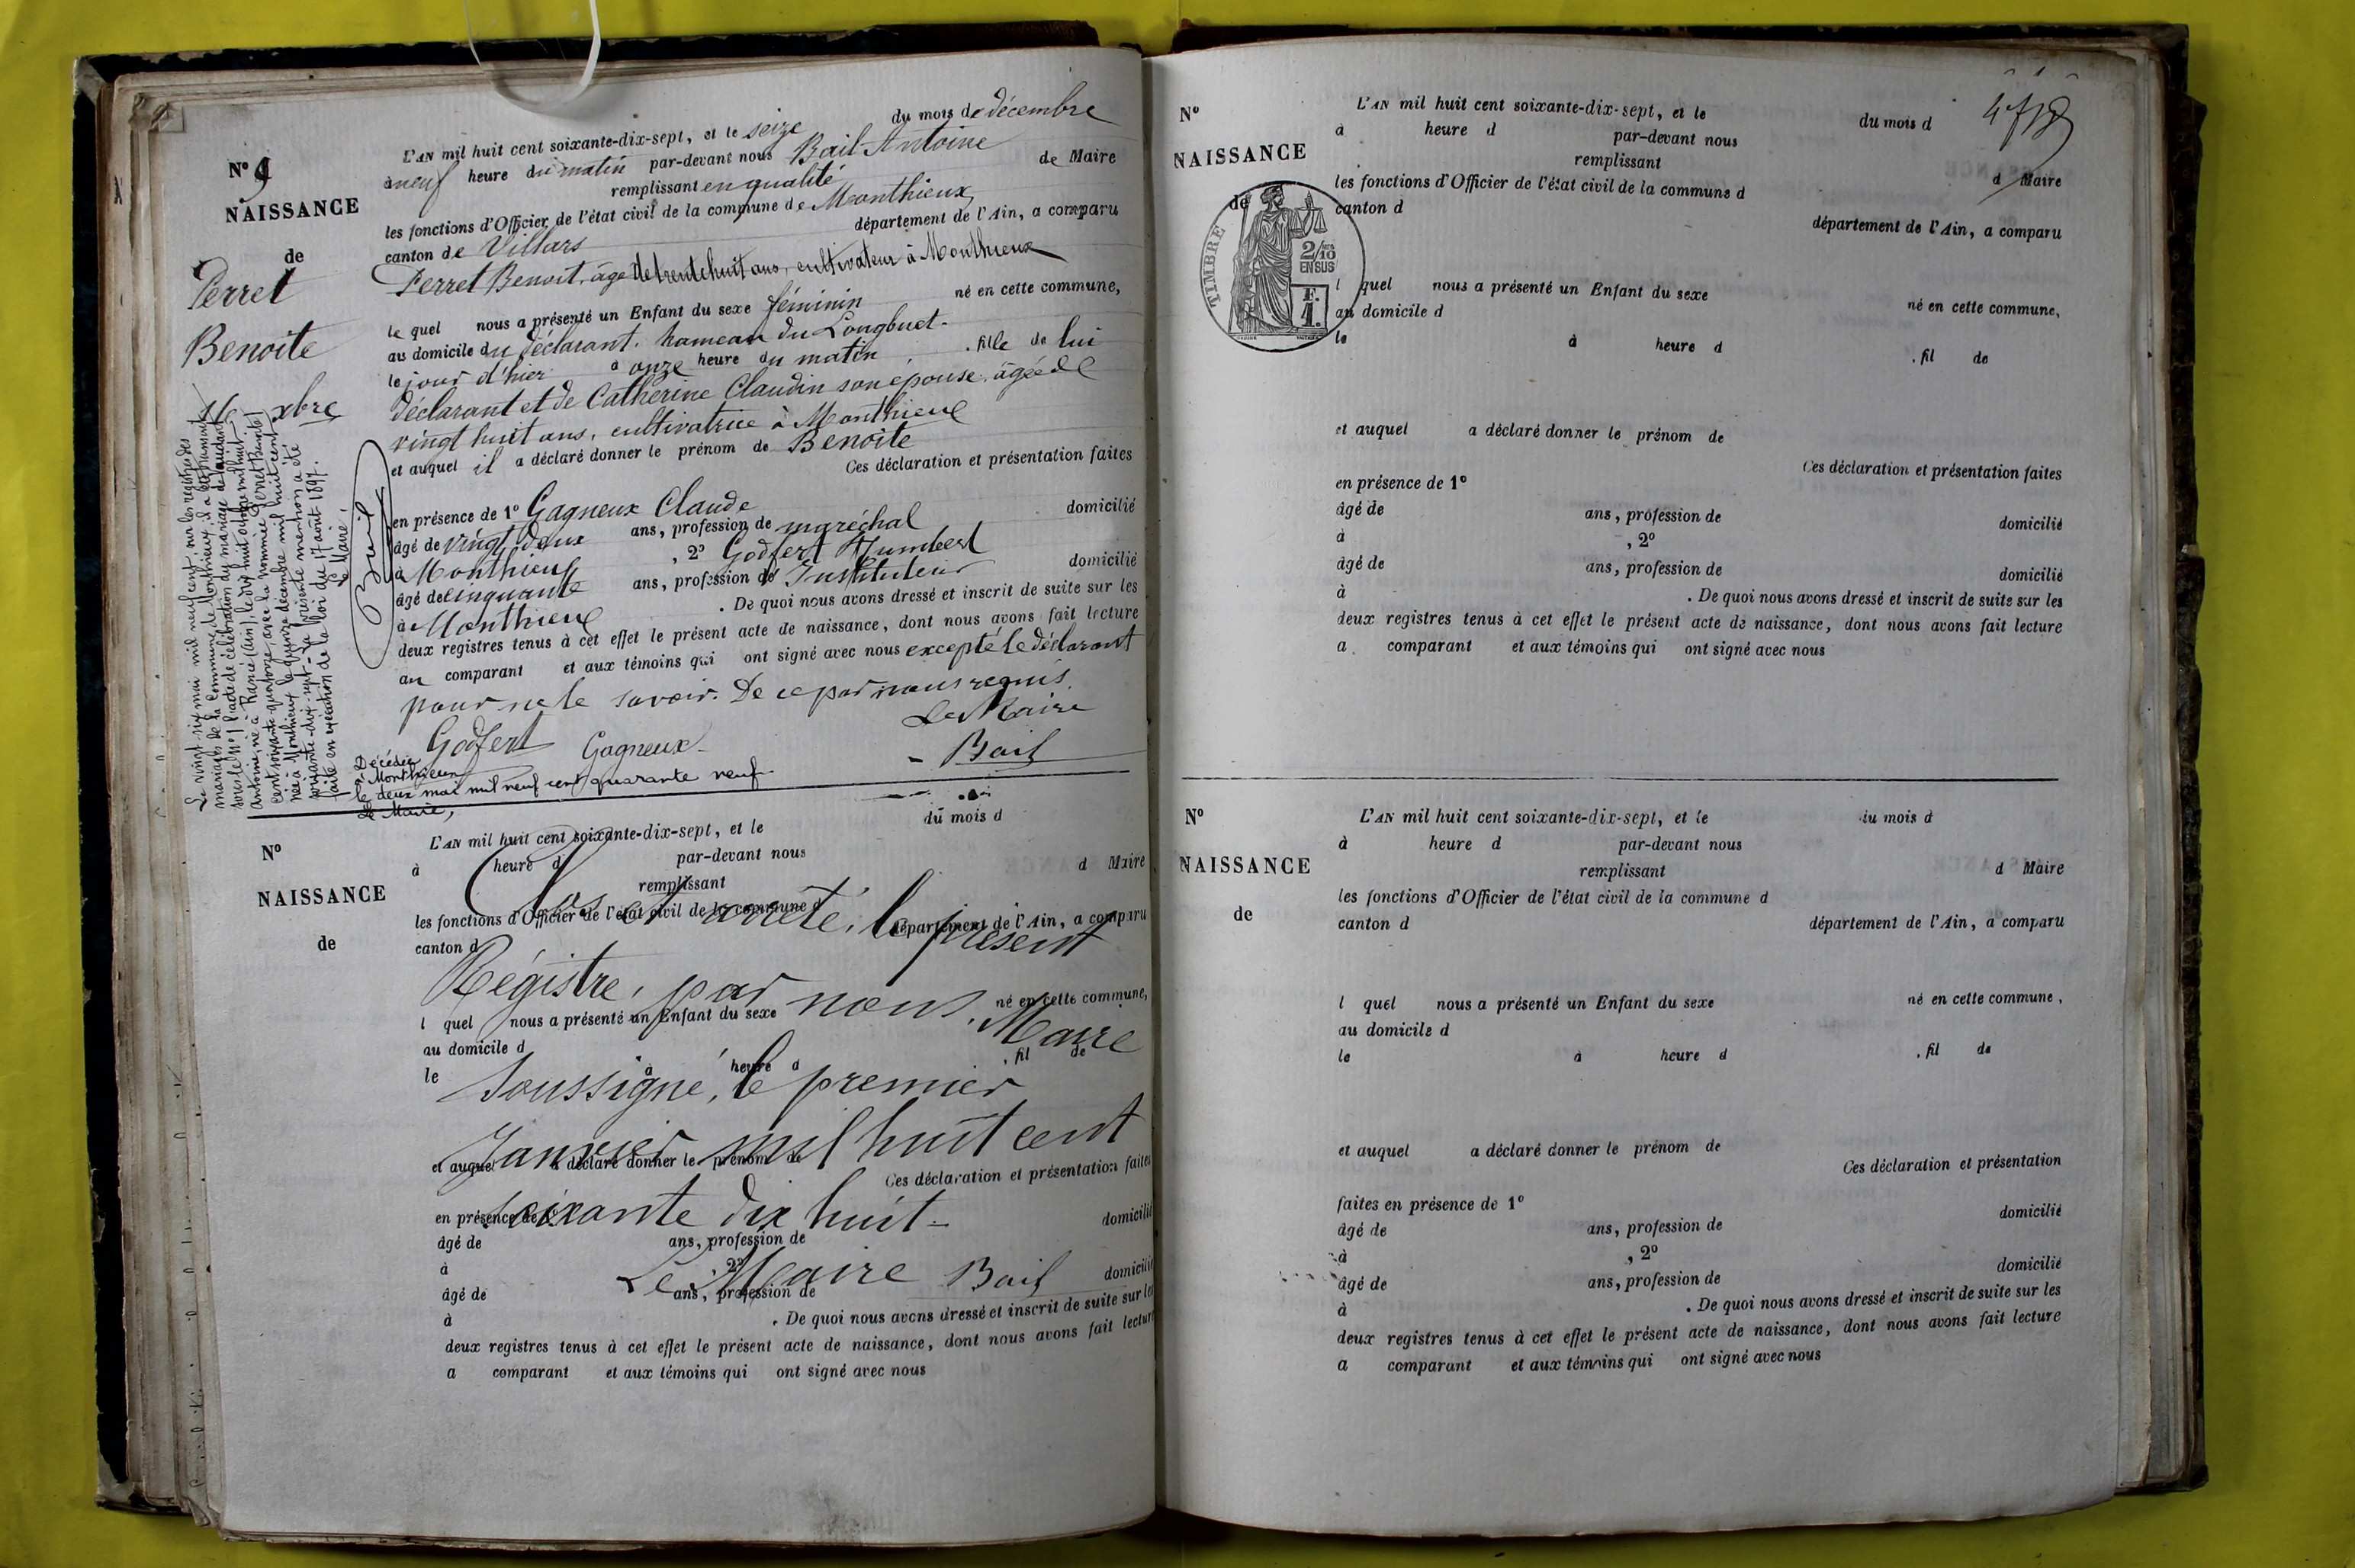 N° 9
NAISSANCE
de
Perret
Benoite
16 xbre
L'AN mil huit cent soixante-dix-sept, et le seize du mois de décembre
à neuf heure du matin par-devant nous Bail Antoine
remplissant en qualité de Maire
les fonctions d'Officier de l'état civil de la commune de Monthieux
canton de Villars département de l'Ain, a comparu
Perret Benoit, âgé de trente huit ans, cultivateur à Monthieux
le quel nous a présenté un Enfant du sexe féminin né en cette commune,
au domicile du déclarant, hameau du
le jour d'hier à onze heure du matin, fille de lui
déclarant et de Catherine Claudin son épouse, âgée de
vingt huit ans, cultivatrice à Monthieux
et auquel il a déclaré donner le prénom de Benoite
Ces déclaration et présentation faites
en présence de 1° Gagneux Claude
âgé de vingt deux ans, profession de maréchal domicilié
à Monthieux, 2° Godfert Humbert
âgé de cinquante ans, profession de Instituteur domicilié
à Monthieux. De quoi nous avons dressé et inscrit de suite sur les
deux registres tenus à cet effet le présent acte de naissance, dont nous avons fait lecture
au comparant et aux témoins qui ont signé avec nous excepté le déclarant
pour ne le savoir. De ce par nous requis.
Le Maire
Godfert Gagneux Bail
Le vingt-six mai mil neuf cent, sur les registres des
mariages de la commune de Monthieux, il a été transcrit
sous le N° 1 l'acte de célébration du mariage de
Antoine, né à Rancé (Ain), le dix huit mil huit
cent soixante-quatorze, avec la nommée Perret Benoite
née à Monthieux le quinze décembre mil huit cent
soixante-dix-sept. La présente mention a été
faite en exécution de la loi du 17 août 1897.
Le Maire,
Décédée
à Monthieux
le deux mai mil neuf cent quarante neuf.
Le Maire,
N°
NAISSANCE
de
L'AN mil huit cent soixante-dix-sept, et le du mois d
à heure d par-devant nous
remplissant d Maire
les fonctions d'Officier de l'état civil de la commune d
canton d département de l'Ain, a comparu
Clos et arrêté, le présent
Régistre, par nous, Maire
l quel nous a présenté un Enfant du sexe né en cette commune,
au domicile d
le à heure d , fil de
Soussigné, le premier
Janvier mil huit cent
et auquel a déclaré donner le prénom de
Ces déclaration et présentation faites
soixante dix huit
en présence de 1° domicilié
âgé de ans, profession de
à , 2°
Le Maire Bail
âgé de ans, profession de domicilié
à . De quoi nous avons dressé et inscrit de suite sur les
deux registres tenus à cet effet le présent acte de naissance, dont nous avons fait lecture
a comparant et aux témoins qui ont signé avec nous
N°
NAISSANCE
de
TIMBRE
2/10
EN SUS
F.
1.
L'AN mil huit cent soixante-dix-sept, et le du mois d
à heure d par-devant nous
remplissant d Maire
les fonctions d'Officier de l'état civil de la commune d
canton d département de l'Ain, a comparu
l quel nous a présenté un Enfant du sexe né en cette commune,
au domicile d
le à heure d , fil de
et auquel a déclaré donner le prénom de
Ces déclaration et présentation faites
en présence de 1°
âgé de ans, profession de domicilié
à , 2°
âgé de ans, profession de domicilié
à . De quoi nous avons dressé et inscrit de suite sur les
deux registres tenus à cet effet le présent acte de naissance, dont nous avons fait lecture
a comparant et aux témoins qui ont signé avec nous
N°
NAISSANCE
de
L'AN mil huit cent soixante-dix-sept, et le du mois d
à heure d par-devant nous
remplissant d Maire
les fonctions d'Officier de l'état civil de la commune d
canton d département de l'Ain, a comparu
l quel nous a présenté un Enfant du sexe né en cette commune,
au domicile d
le à heure d , fil de
et auquel a déclaré donner le prénom de
Ces déclaration et présentation
faites en présence de 1°
âgé de ans, profession de domicilié
à , 2°
âgé de ans, profession de domicilié
à . De quoi nous avons dressé et inscrit de suite sur les
deux registres tenus à cet effet le présent acte de naissance, dont nous avons fait lecture
a comparant et aux témoins qui ont signé avec nous